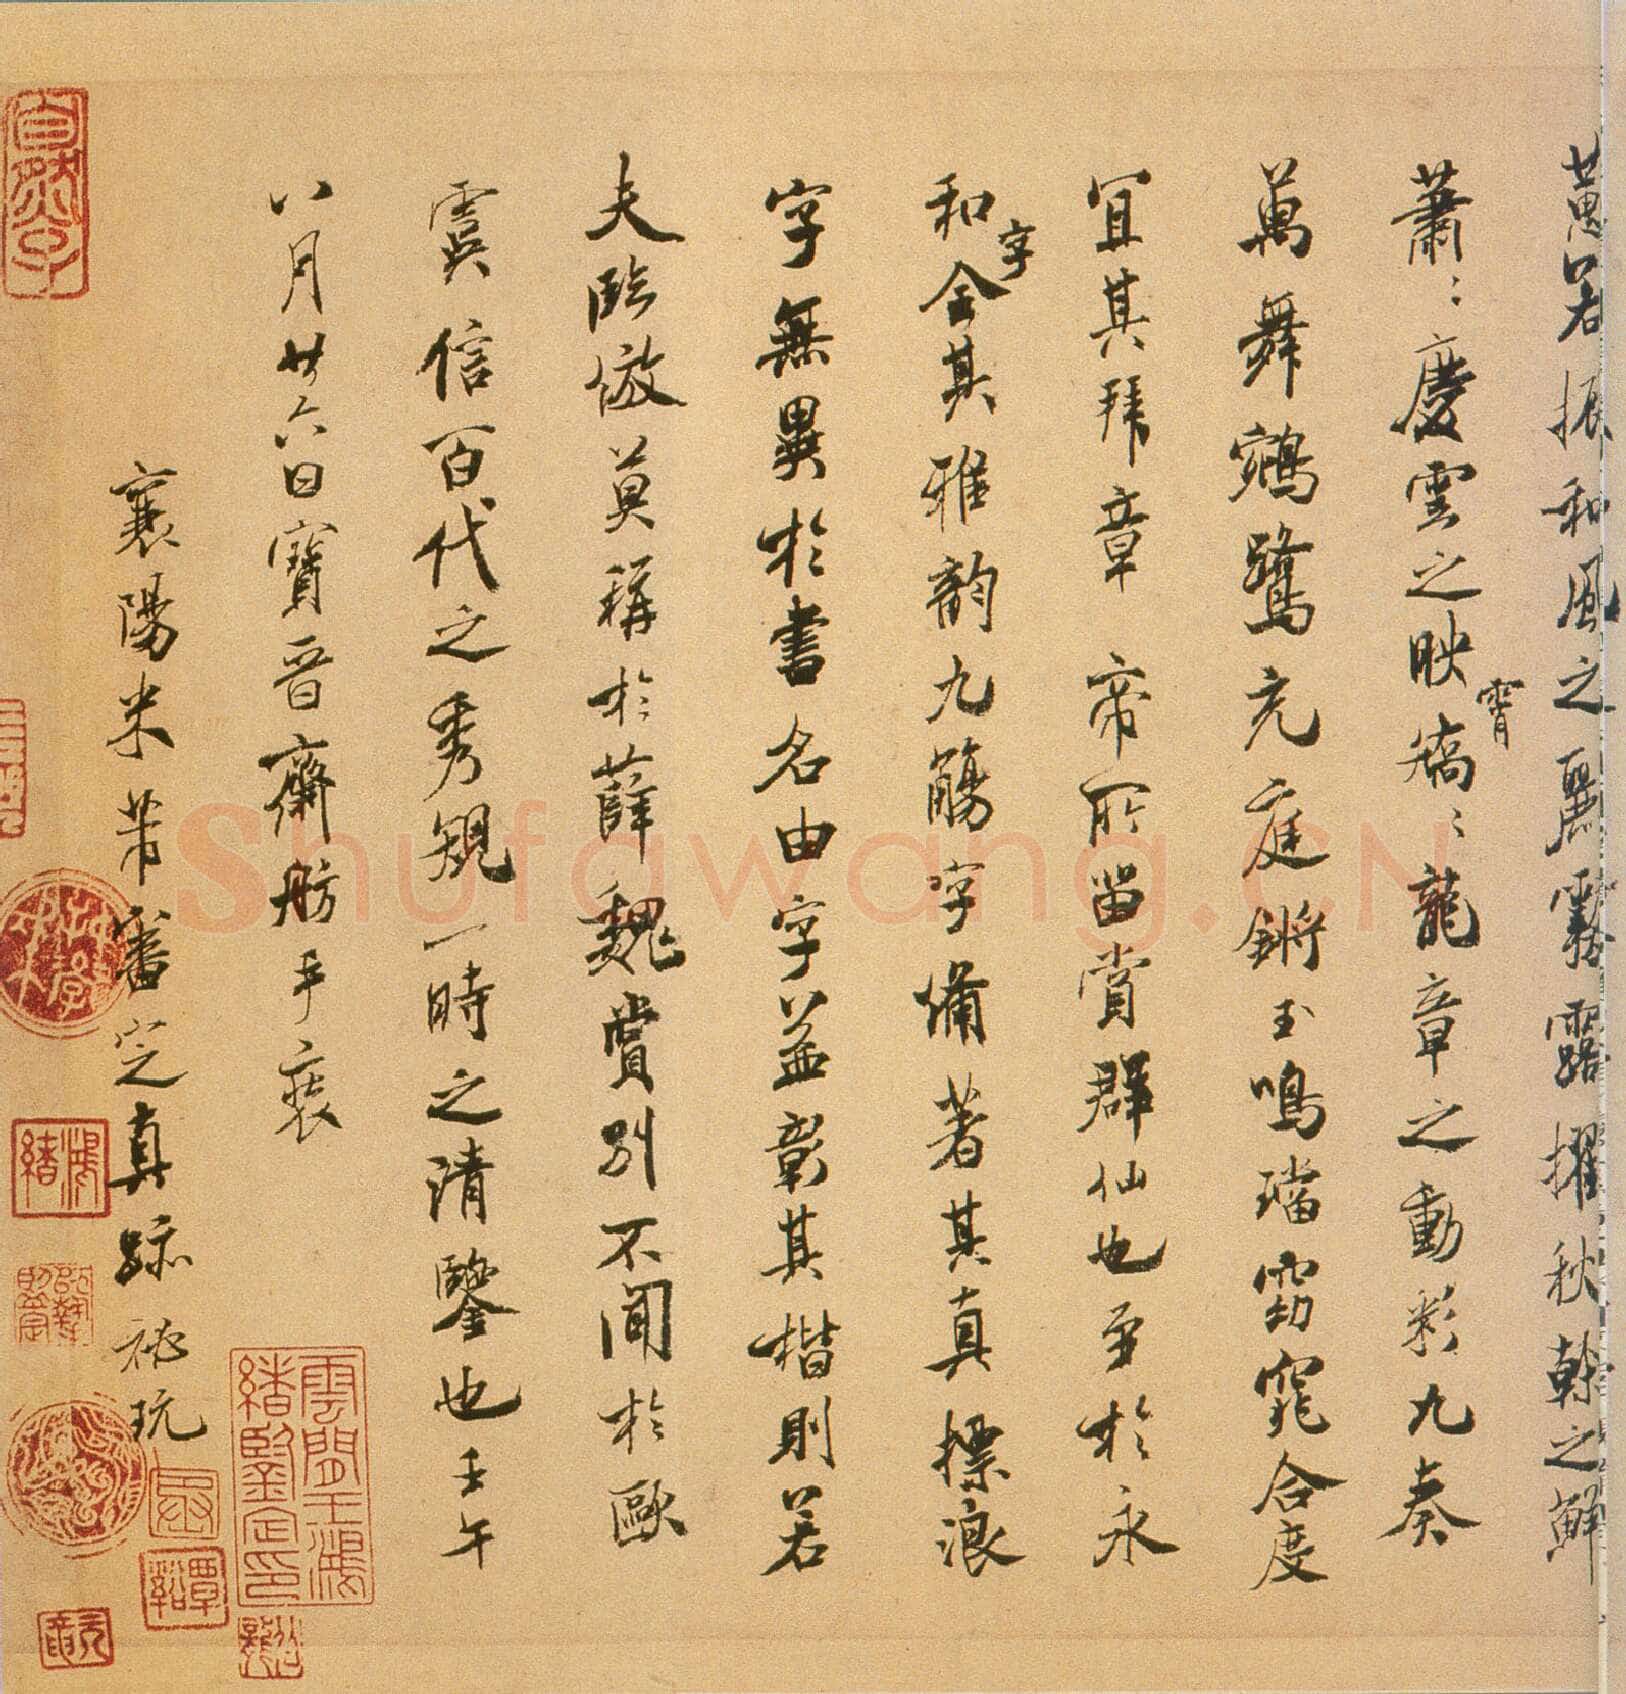 蕙若振和風之麗霧露擢秋幹之鮮
蕭〻慶雲之映霄矯〻龍章之動彩九奏
萬舞鵷鷺充庭鏘玉鳴璫窈窕合度
宜其拜章帝所留賞群仙也至於永
和字全其雅韵九觴字備著其真摽浪
字無異於書名由字益彰其楷則若
夫臨倣莫稱於薛魏賞別不聞於歐
虞信百代之秀規一時之清鑒也壬午
八月廿六日寶晉齋舫手裝
襄陽米芾審定真跡祕玩
雲間王鴻緒鑒定印
鴻緒
Shufawang.CN